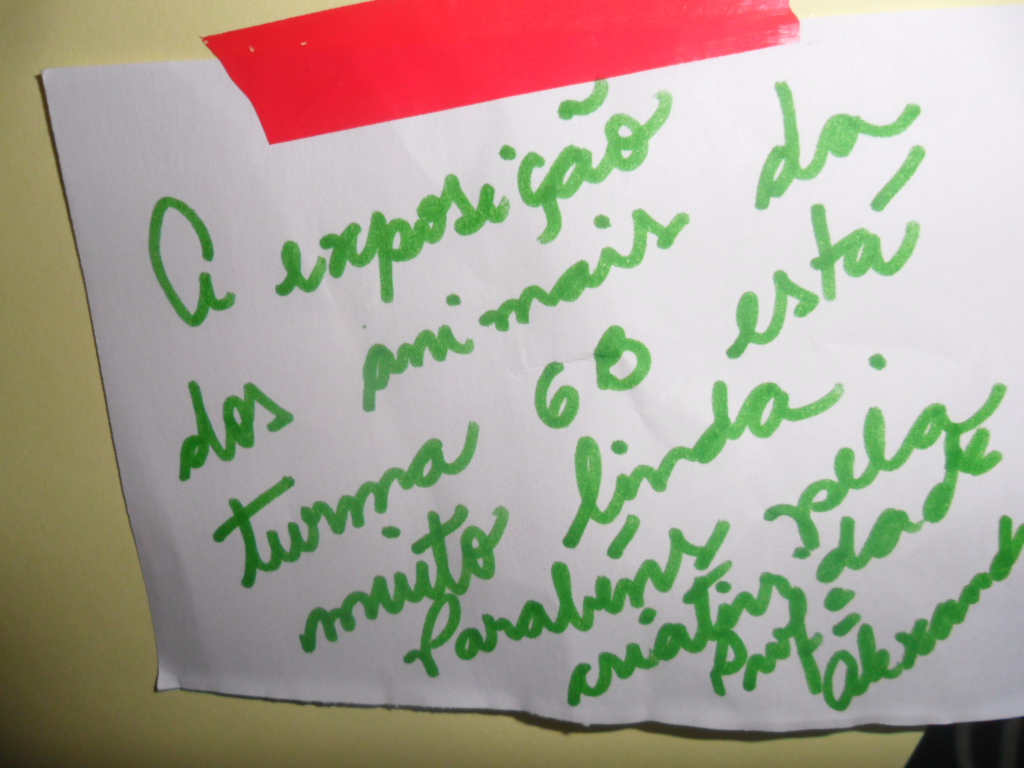 A exposição
dos animais da
turma 6B está
muito linda.
Parabéns pela
criatividade
Profª